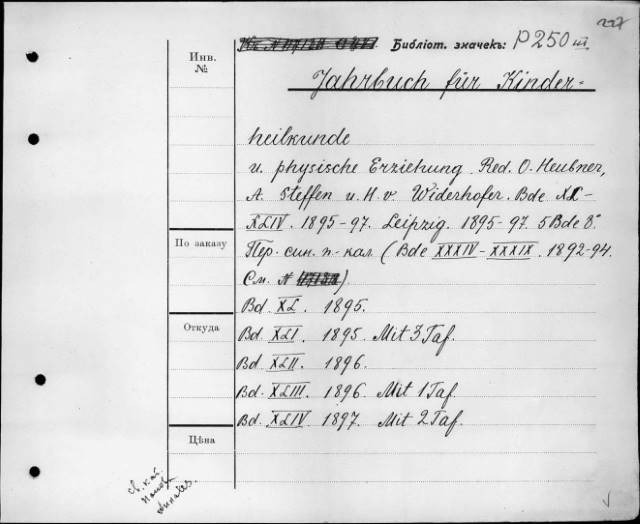 227
Библіот. значекъ: P 250 III
Инв. №
Jahrbuch für Kinder-
heilkunde
u. physische Erziehung. Red. O. Heubner,
A. Steffen u. H. v. Widerhofer. Bde XL-
XLIV. 1895-97. Leipzig. 1895-97. 5 Bde 8°.
По заказу
Пер. син. п-кал. (Bde XXXIV-XXXIX. 1892-94.
См. №)
Bd. XL. 1895.
Откуда
Bd. XLI. 1895. Mit 3 Taf.
Bd. XLII. 1896.
Bd. XLIII. 1896. Mit 1 Taf.
Bd. XLIV. 1897. Mit 2 Taf.
Цѣна